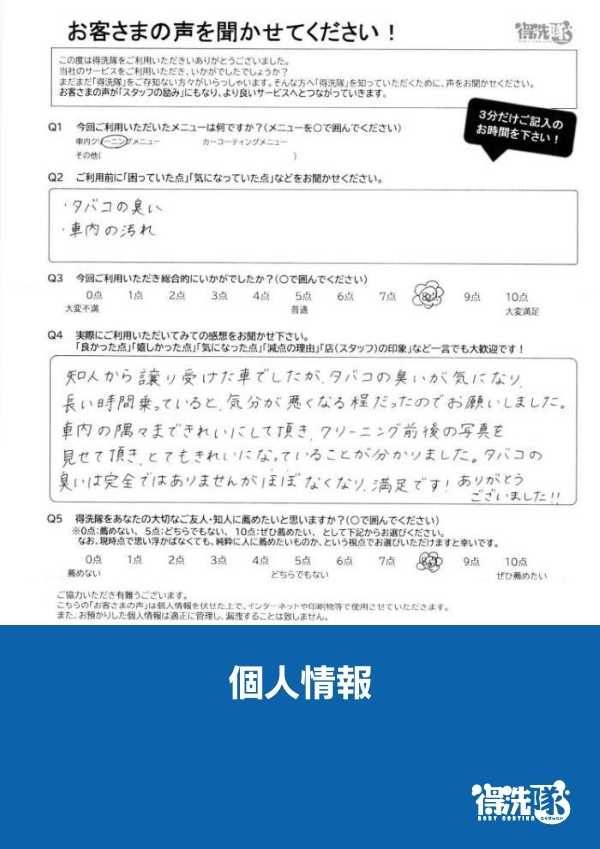 お客さまの声を聞かせてください！
得洗隊
この度は得洗隊をご利用いただきいありがとうございました。
当社のサービスをご利用いただき、いかがでしたでしょうか？
まだまだ「得洗隊」をご存知ない方々がいらっしゃいます。そんな方へ「得洗隊」を知っていただくために、声をお聞かせください。
お客さまの声が「スタッフの励み」にもなり、より良いサービスへとつながっていきます。
3分だけご記入の
お時間を下さい！
Q1 今回ご利用いただいたメニューは何ですか？（メニューを〇で囲んでください）
車内クリーニングメニュー カーコーティングメニュー
その他（ ）
Q2 ご利用前に「困っていた点」「気になっていた点」などをお聞かせください。
・タバコの臭い
・車内の汚れ
Q3 今回ご利用いただき総合的にいかがでしたか？（〇で囲んでください）
0点 1点 2点 3点 4点 5点 6点 7点 8点 9点 10点
大変不満 普通 大変満足
Q4 実際にご利用いただいてみての感想をお聞かせ下さい。
「良かった点」「嬉しかった点」「気になった点」「減点の理由」「店（スタッフ）の印象」など一言でも大歓迎です！
知人から譲り受けた車でしたが、タバコの臭いが気になり、
長い時間乗っていると、気分が悪くなる程だったのでお願いしました。
車内の隅々まできれいにして頂き、クリーニング前後の写真を
見せて頂き、とてもきれいになっていることが分かりました。タバコの
臭いは完全ではありませんがほぼなくなり、満足です！ありがとう
ございました！！
Q5 得洗隊をあなたの大切なご友人・知人に薦めたいと思いますか？（〇で囲んでください）
※0点：薦めない、 5点：どちらでもない、 10点：ぜひ薦めたい、 として下記からお選びください。
なお、現時点で思い浮かばなくても、純粋に人に薦めたいものか、という視点でお選びいただけますと幸いです。
0点 1点 2点 3点 4点 5点 6点 7点 8点 9点 10点
薦めない どちらでもない ぜひ薦めたい
ご協力いただき有難うございます。
こちらの「お客さまの声」は個人情報を伏せた上で、インターネットや印刷物等で使用させていただきます。
また、お預かりした個人情報は適正に管理し、漏洩することは致しません。
個人情報
得洗隊
BODY COATING とくせんたい